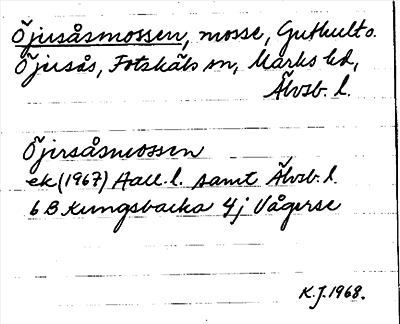 Öjusåsmossen, mosse, Guthult o.
Öjusås, Fotskäls sn, Marks hd,
Älvsb. l.
Öjirsåsmossen
ek (1967) Hall. l. samt Älvsb. l.
6 B Kungsbacka 4j Vågerse
K.J. 1968.